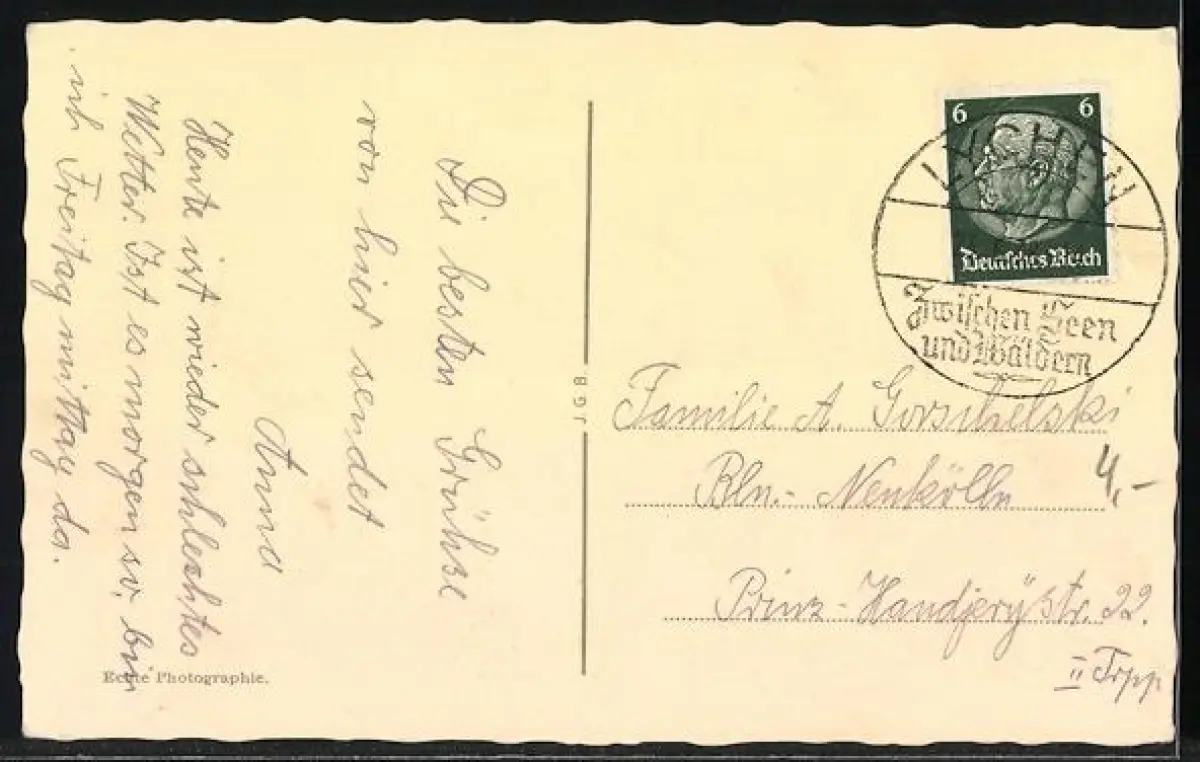 Die besten Grühse
von hier sendet
Anna
Heute ist wieder schlechtes
Wetter. Ist es morgen so, bin
ich Freitag mittag da.
Echte Photographie.
JGB
6 6
Deutsches Reich
LYCHEN
Zwischen Seen
und Wäldern
Familie A. Gorschelski
4,-
Bln.- Neukölln
Prinz-Handjerystr. 22.
II Trpp